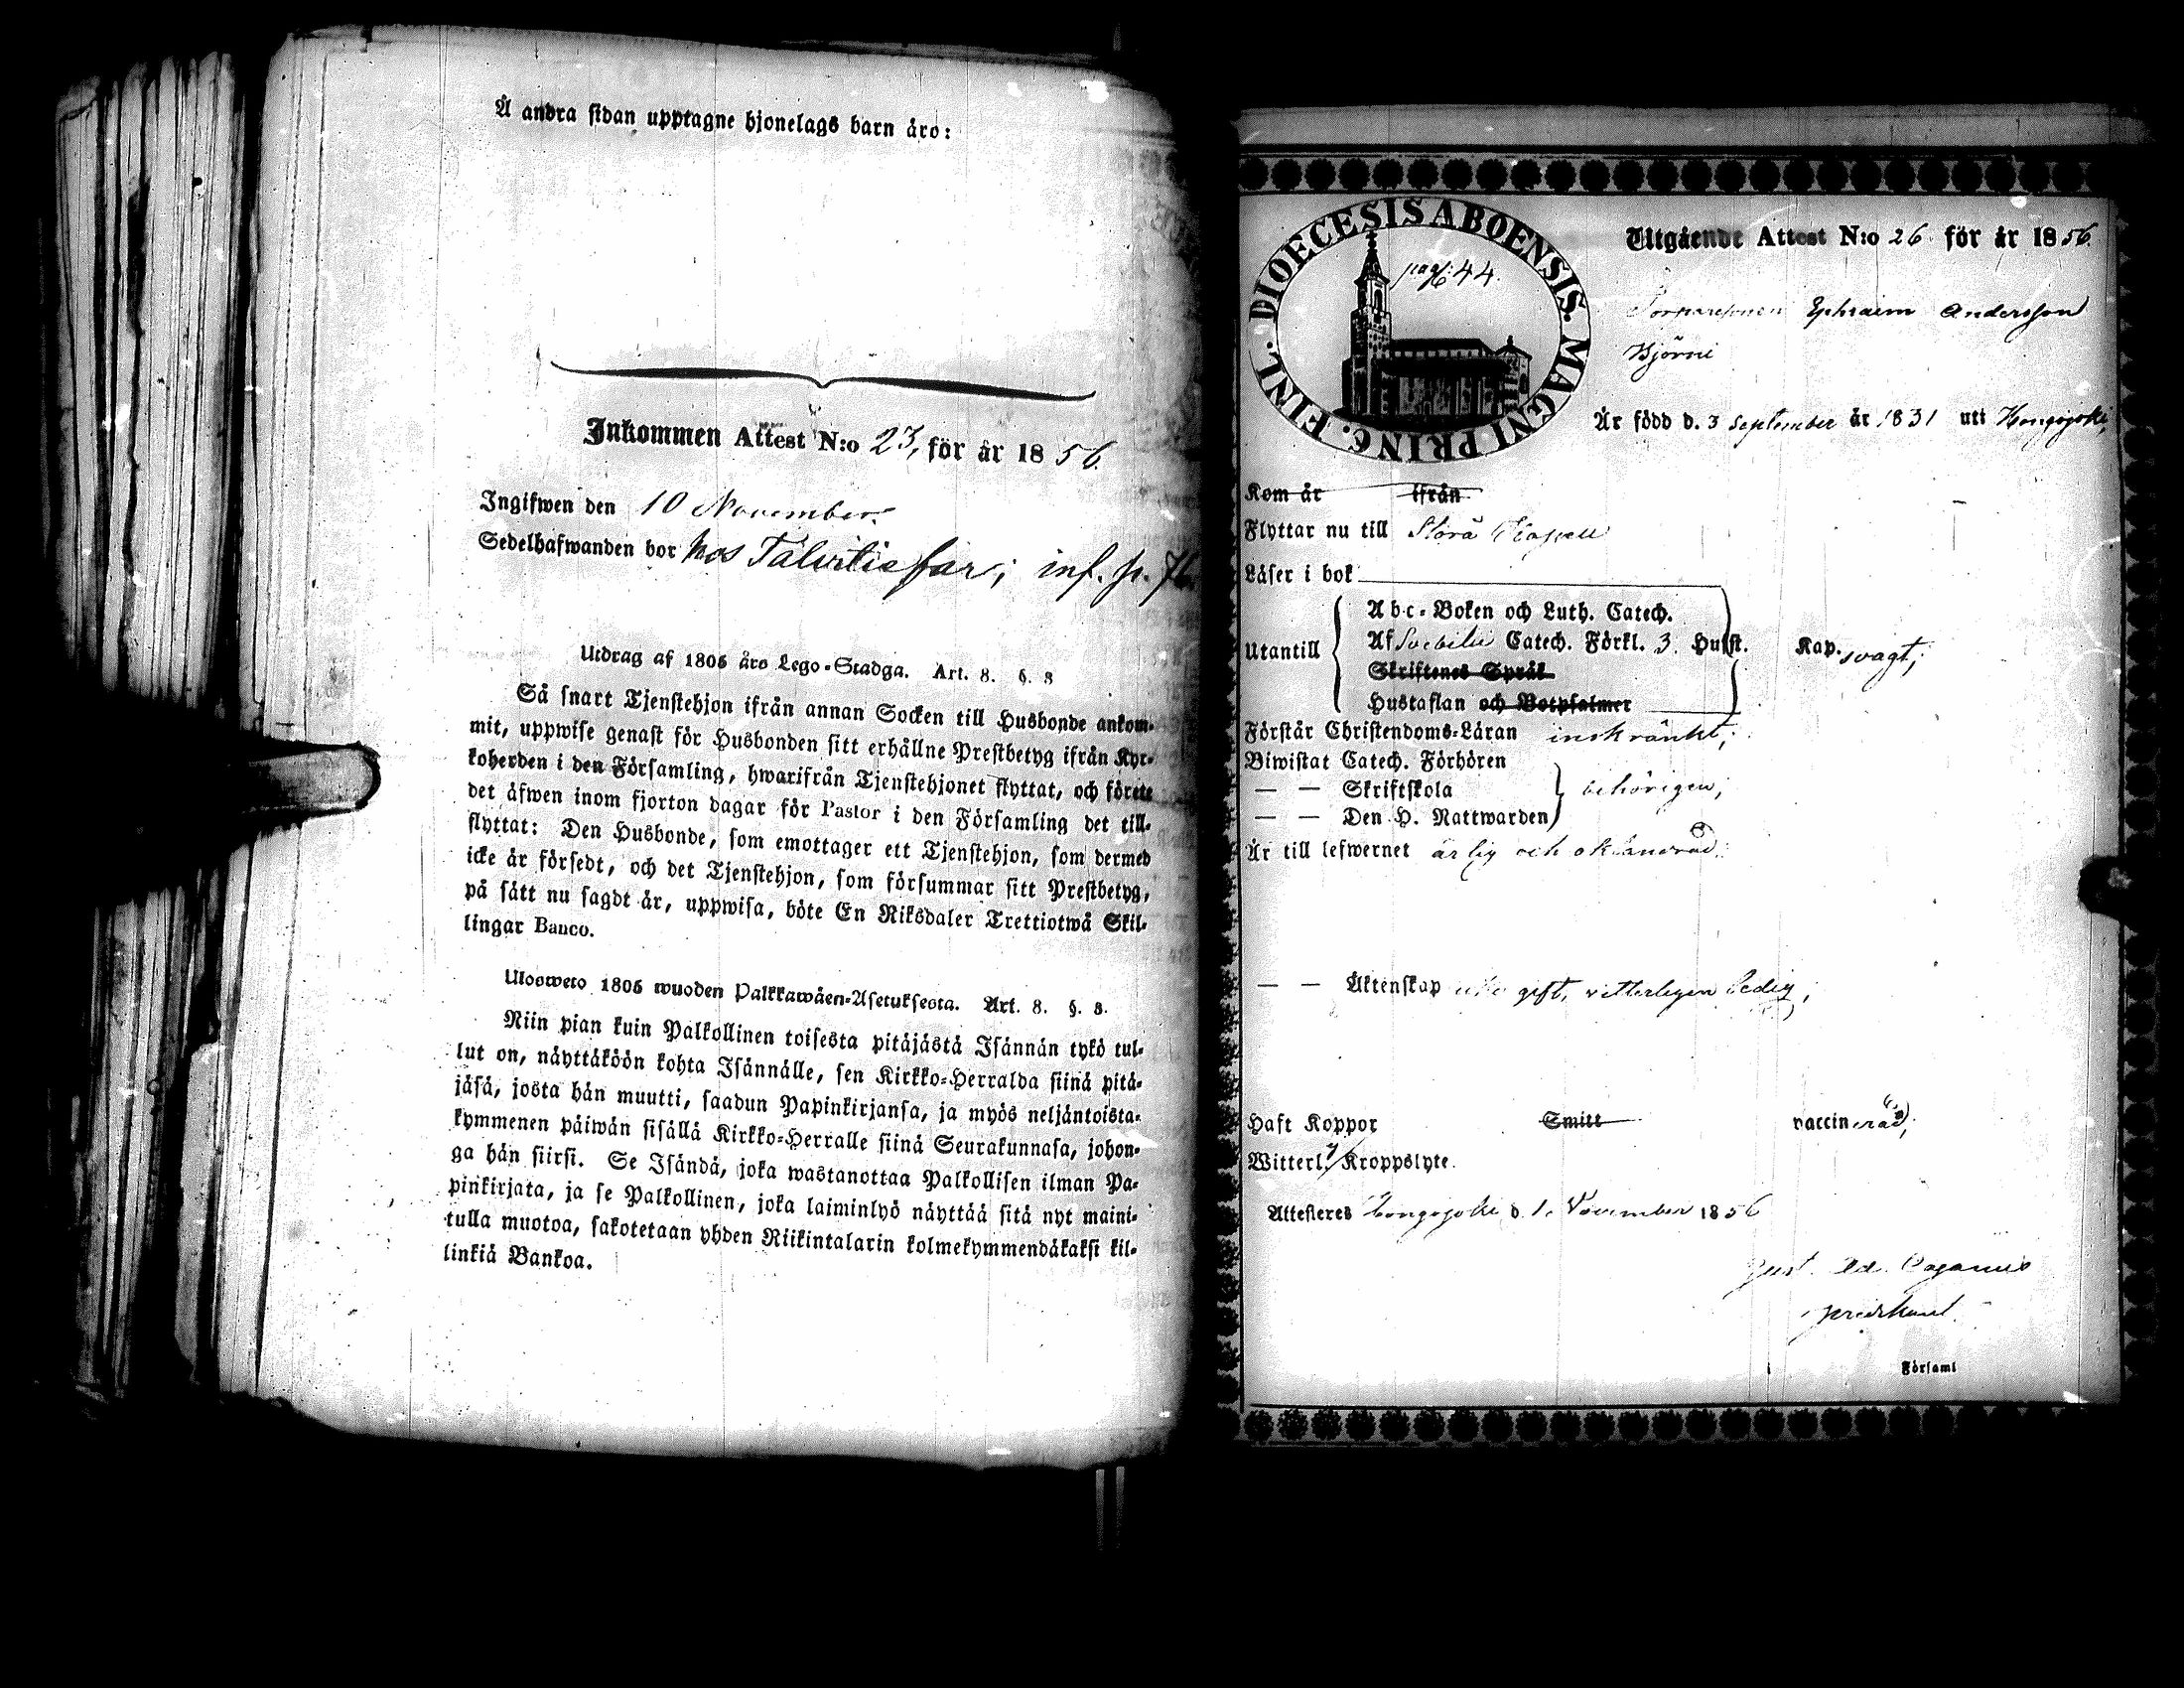 Å andra sidan upptagne hjonelags barn äro:
Inkommen Attest N:o 23, för år 1856.
Ingifwen den 10 November.
Sedelhafwanden bor hos Talvitie far; inf. p. 76
Utdrag af 1805 års Lego-Stadga. Art. 8. §. 8
Så snart Tjenstehjon ifrån annan Socken till Husbonde ankom-
mit, uppwise genast för Husbonden sitt erhållne Prestbetyg ifrån Kyr-
koherden i den Församling, hwarifrån Tjenstehjonet flyttat, och förete
det äfwen inom fjorton dagar för Pastor i den Församling det till-
flyttat: Den Husbonde, som emottager ett Tjenstehjon, som dermed
icke är försedt, och det Tjenstehjon, som försummar sitt Prestbetyg,
på sätt nu sagdt är, uppwisa, böte En Riksdaler Trettiotwå Skil-
lingar Banco.
Ulosweto 1805 wuoden Palkkawäen-Asetuksesta. Art. 8. §. 8.
Niin pian kuin Palkollinen toisesta pitäjästä Isännän tykö tul-
lut on, näyttäköön kohta Isännälle, sen Kirkko-Herralda siinä pitä-
jäsä, josta hän muutti, saadun Papinkirjansa, ja myös neljäntoista-
kymmenen päiwän sisällä Kirkko-Herralle siinä Seurakunnasa, johon-
ga hän siirsi. Se Isändä, joka wastanottaa Palkollisen ilman Pa-
pinkirjata, ja se Palkollinen, joka laiminlyö näyttää sitä nyt maini-
tulla muotoa, sakotetaan yhden Riikintalarin kolmekymmendäkaksi kil-
linkiä Bankoa.
DIOECESIS ABOENSIS. MAGNI PRINC. FINL.
pag: 44.
Utgående Attest N:o 26 för år 1856.
Torparesonen Ephraim Andersson
Björni
Är född d. 3 September år 1831 uti Kongojoki,
Kom år ifrån
Flyttar nu till Storå Kapell
Läser i bok
Abc-Boken och Luth. Catech.
Utantill Af Svebilii Catech. Förkl. 3. Hufst. Kap. svagt;
Skriftenes Språk
Hustaflan och Botpsalmer
Förstår Christendoms-Läran inskränkt;
Biwistat Catech. Förhören
— — Skriftskola behörigen;
— — Den H. Nattwarden
Är till lefwernet ärlig och oklandrad;
— — Äktenskap icke gift, vetterligen ledig;
Haft Koppor Smitt vaccinerad;
Witterl. Kroppslyte.
Attesteras Kongojoki d. 1. November 1856
Gust. Ad. Cajanus
Församl